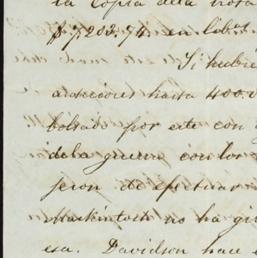 la Copia de la nota
$ 7203.74 en libr
Si hubie
atenciones hasta 400.0
bolsado por este con
de la guerra con los
sion de efectuar
Mackintosh no ha gi
esa. Davidson hace